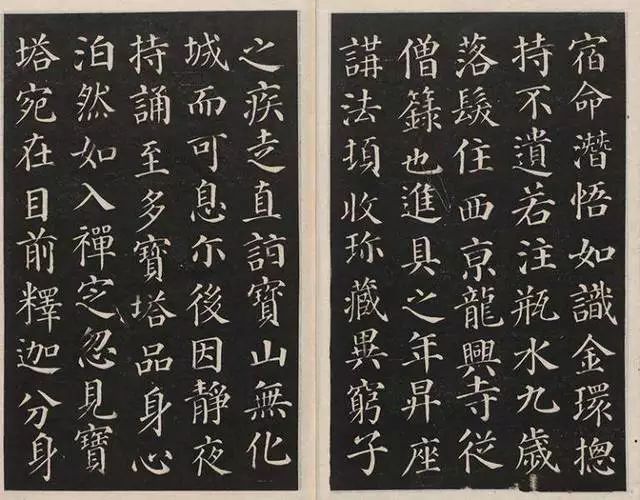 宿命潛悟如識金環揔
持不遺若注瓶水九歲
落髮住西亰龍興寺從
僧籙也進具之年昇座
講法頓收珎藏異窮子
之疾走直詣寶山無化
城而可息尒後因靜夜
持誦至多寶塔品身心
泊然如入禪定忽見寶
塔宛在目前釋迦分身